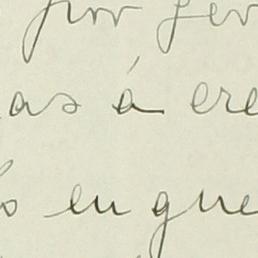 por ger
as á cre
s en que